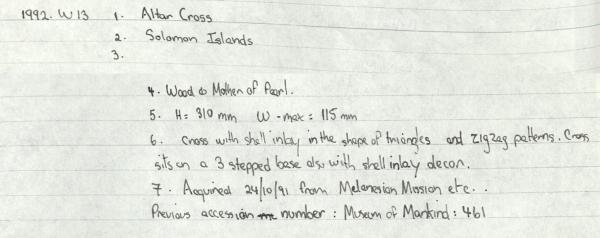 1992. W13 1. Altar Cross
2. Solomon Islands
3.
4. Wood & Mother of Pearl.
5. H= 310 mm W-max = 115 mm
6. Cross with shell inlay in the shape of triangles and zigzag patterns. Cross
sits on a 3 stepped base also with shell inlay decon.
7. Acquired 24/10/91 from Melanesian Mission etc..
Previous accession number : Museum of Mankind : 461